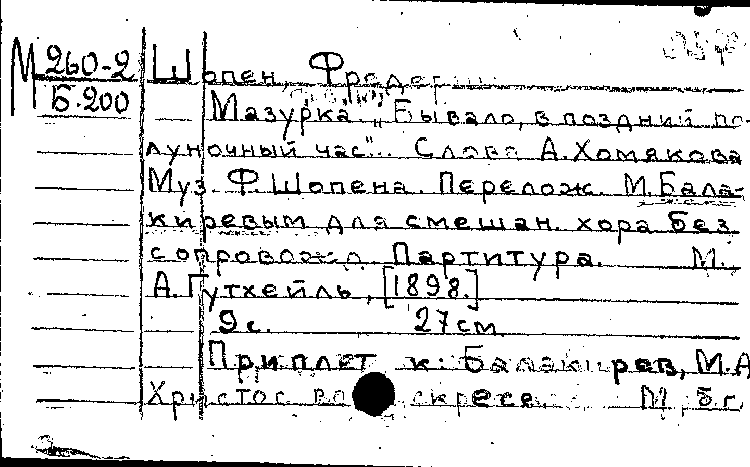 М 260-2 Шопен, Фредерик
Б.200 Мазурка „Бывало, в поздний по-
луночный час". Слова А.Хомякова
Муз. Ф.Шопена. Перелож. М.Бала-
киревым для смешан. хора без
сопровожд. Партитура. М.,
А.Гутхейль, [1898.]
9с. 27см
Приплет к: Балакирев, М.А
Христос воскресе. М., б.г.